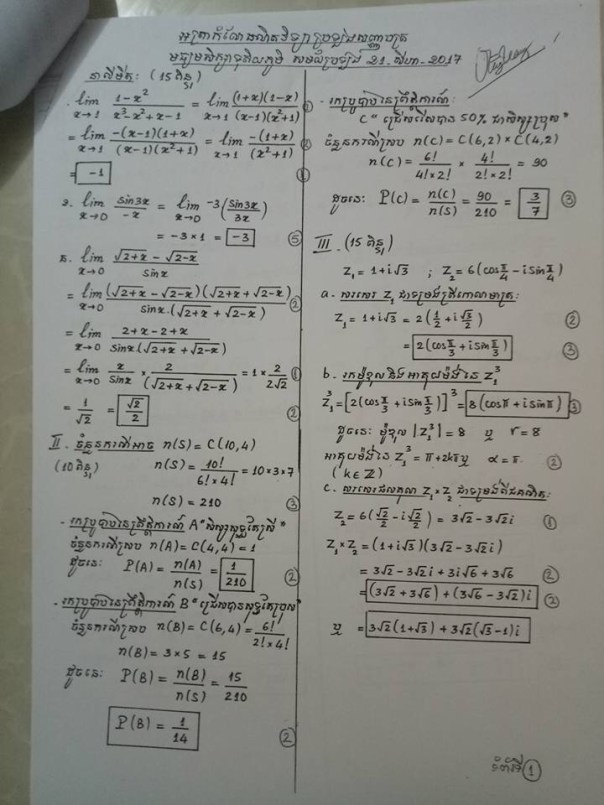 អត្រាកំណែគណិតវិទ្យាប្រឡងសញ្ញាបត្រ
មធ្យមសិក្សាទុតិយភូមិ សម័យប្រឡង 21-សីហា-2017
(15 ពិន្ទុ)
lim x→1 (1-x²)/(x³-x²+x-1) = lim x→1 (1+x)(1-x)/(x-1)(x²+1)
= lim x→1 -(x-1)(1+x)/(x-1)(x²+1) = lim x→1 -(1+x)/(x²+1)
= -1
២. lim x→0 sin3x/-x = lim x→0 -3(sin3x/3x)
= -3×1 = -3 ⑤
lim x→0 (√2+x - √2-x)/sinx
= lim x→0 (√2+x - √2-x)(√2+x + √2-x)/sinx(√2+x + √2-x) ②
= lim x→0 (2+x-2+x)/sinx(√2+x + √2-x)
= lim x→0 x/sinx × 2/(√2+x + √2-x) = 1×2/2√2 ①
= 1/√2 = √2/2 ②
II - ចំនួនករណីអាច n(S) = C(10,4)
(10 ពិន្ទុ) n(S) = 10!/6!×4! = 10×3×7
n(S) = 210 ③
- រកប្រូបាបនៃព្រឹត្តិការណ៍ A "សិស្សសុទ្ធតែស្រី"
ចំនួនករណីស្រប n(A) = C(4,4) = 1
ដូចនេះ P(A) = n(A)/n(S) = 1/210 ②
- រកប្រូបាបនៃព្រឹត្តិការណ៍ B "ជ្រើសបានសុទ្ធតែប្រុស"
ចំនួនករណីស្រប n(B) = C(6,4) = 6!/2!×4!
n(B) = 3×5 = 15
ដូចនេះ P(B) = n(B)/n(S) = 15/210
P(B) = 1/14 ②
- រកប្រូបាបនៃព្រឹត្តិការណ៍
C "ជ្រើសរើសបាន 50% ជាសិស្សប្រុស"
ចំនួនករណីស្រប n(C) = C(6,2)×C(4,2)
n(C) = 6!/4!×2! × 4!/2!×2! = 90
ដូចនេះ P(C) = n(C)/n(S) = 90/210 = 3/7 ③
III - (15 ពិន្ទុ)
Z₁ = 1+i√3 ; Z₂ = 6(cos π/4 - i sin π/4)
a. សរសេរ Z₁ ជាទម្រង់ត្រីកោណមាត្រ
Z₁ = 1+i√3 = 2(1/2 + i √3/2) ②
= 2(cos π/3 + i sin π/3) ③
b. រកម៉ូឌុល និងអាគុយម៉ង់នៃ Z₁³
Z₁³ = [2(cos π/3 + i sin π/3)]³ = 8(cosπ + i sinπ) ③
ដូចនេះ ម៉ូឌុល |Z₁³| = 8 ឬ r = 8
អាគុយម៉ង់នៃ Z₁³ = π+2kπ ឬ α = π ②
(k∈ℤ)
c. សរសេរផលគុណ Z₁×Z₂ ជាទម្រង់ពីជគណិត
Z₂ = 6(√2/2 - i √2/2) = 3√2 - 3√2i ①
Z₁×Z₂ = (1+i√3)(3√2 - 3√2i)
= 3√2 - 3√2i + 3i√6 + 3√6 ②
= (3√2+3√6) + (3√6-3√2)i ②
ឬ = 3√2(1+√3) + 3√2(√3-1)i
ទំព័រទី ①